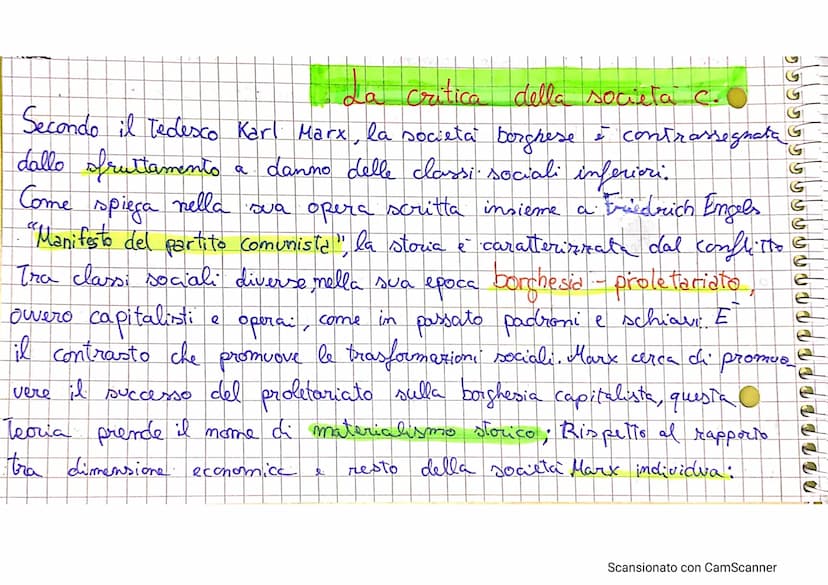 La critica della società c.
Secondo il Tedesco Karl Marx, la società borghese è contrassegnata
dallo sfruttamento a danno delle classi sociali inferiori.
Come spiega nella sua opera scritta insieme a Friedrich Engels
"Manifesto del partito comunista", la storia è caratterizzata dal conflitto
Tra classi sociali diverse, nella sua epoca borghesia - proletariato,
ovvero capitalisti e operai, come in passato padroni e schiavi. E'
il contrasto che promuove le trasformazioni sociali. Marx cerca di promuo_
vere il successo del proletariato sulla borghesia capitalista, questa
Teoria prende il nome di materialismo storico; Rispetto al rapporto
tra dimensione economica e resto della società Marx individua:
Scansionato con CamScanner